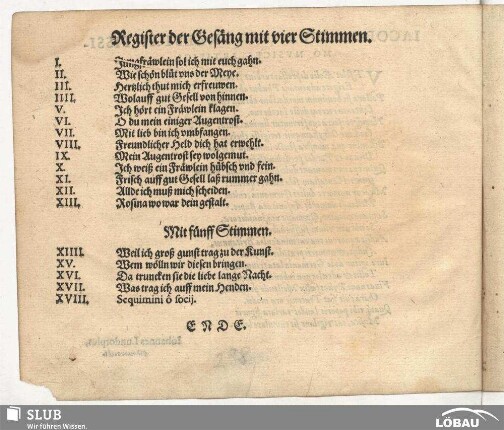 Register der Gesäng mit vier Stimmen.
I. Jungfräwlein sol ich mit euch gahn.
II. Wie schön blüt vns der Meye.
III. Hertzlich thut mich erfreuwen.
IIII. Wolauff gut Gesell von hinnen.
V. Ich hört ein Fräwlein klagen.
VI. O du mein einiger Augentrost.
VII. Mit lieb bin ich vmbfangen.
VIII. Freundlicher Held dich hat erwehlt.
IX. Mein Augentrost sey wolgemut.
X. Ich weiß ein Fräwlein hübsch vnd fein.
XI. Frisch auff gut Gesell laß rummer gahn.
XII. Allde ich muß mich scheiden.
XIII. Rosina wo war dein gestalt.
Mit fünff Stimmen.
XIIII. Weil ich groß gunst trag zu der Kunst.
XV. Wem wölln wir diesen bringen.
XVI. Da truncken sie die liebe lange Nacht.
XVII. Was trag ich auff mein Henden.
XVIII. Sequimini ô socij.
ENDE.
SLUB
Wir führen Wissen.
LÖBAU